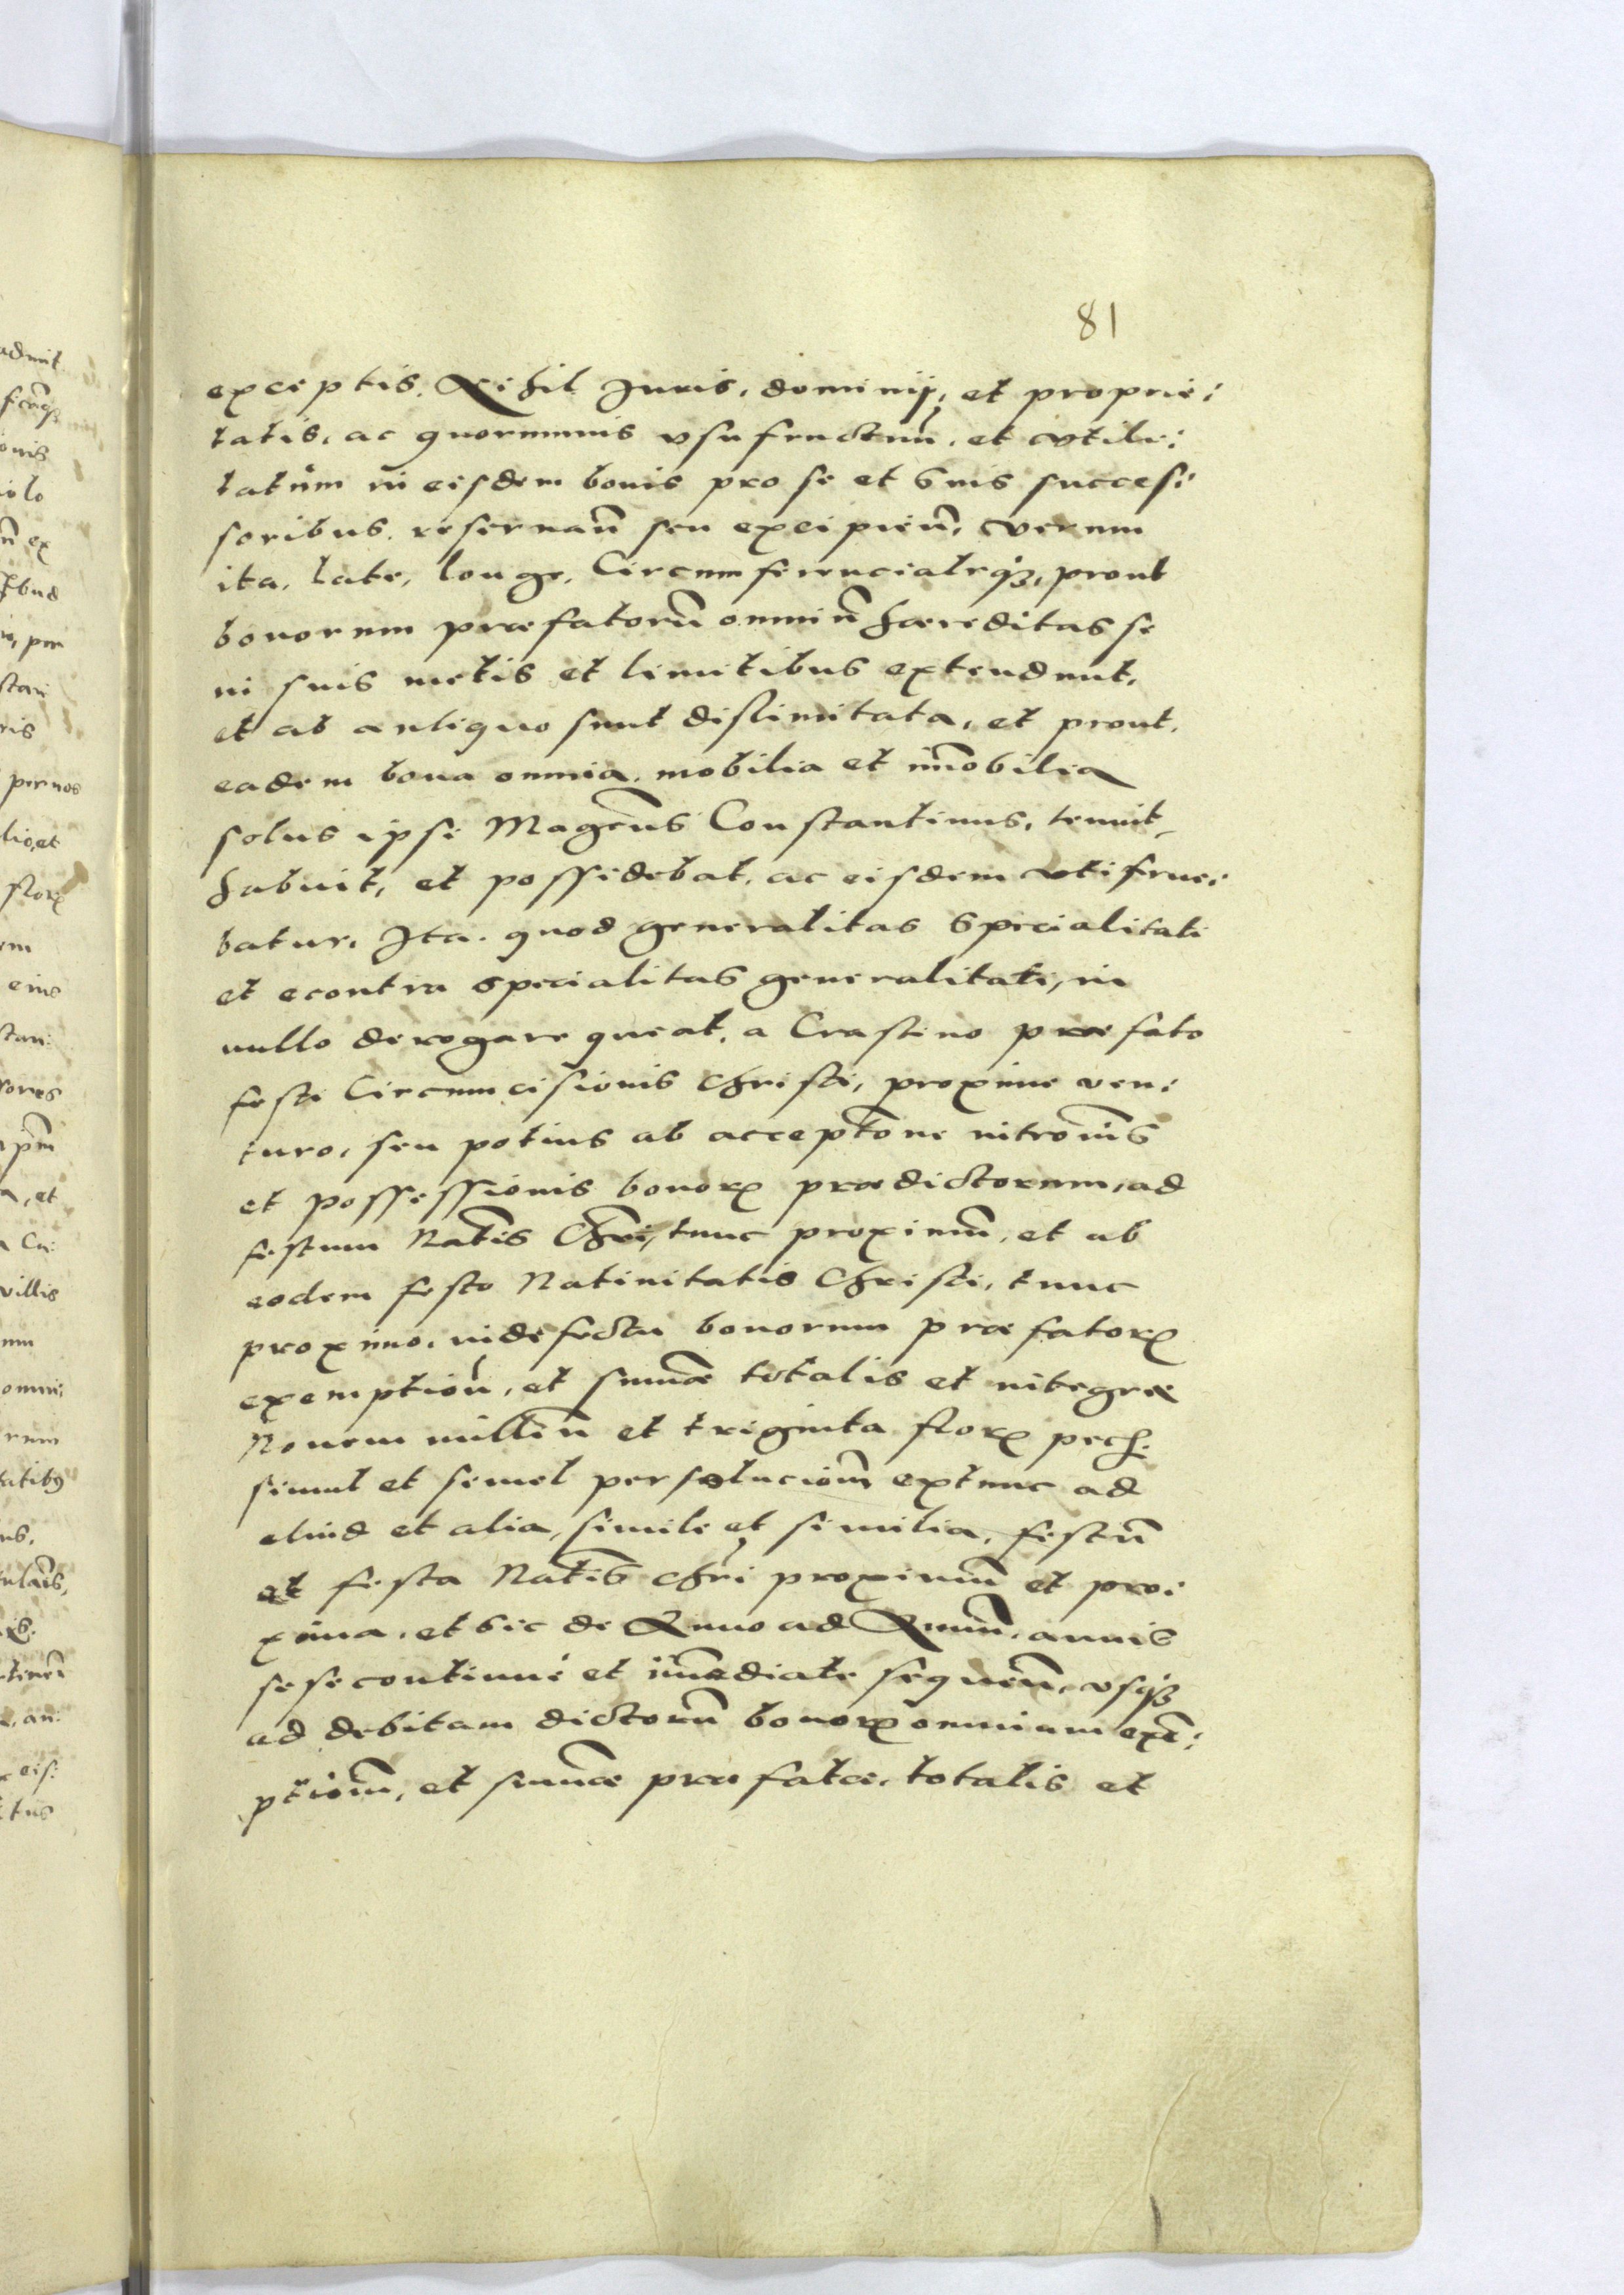 81
exceptis. Nihil Iuris, dominij, et proprie:
tatis, ac quorumuis vsufructuū, et vtili:
tatum in eisdem bonis pro se et suis succes:
soribus, reseruan̄ seu excipien̄, verum
ita, late, longe, Circumferencialrqꝫ, prout
bonorum præfatorū omniū hæreditas se
in suis metis et limitibus extendunt,
et ab antiquo sunt dislimitata, et prout
eadem bona omnia, mobilia et im̄obilia
solus ipse Magcūs Constantinus, tenuit,
habuit, et possidebat, ac eisdem vtifrue:
batur, Ita quod generalitas Specialitati
et econtra specialitas generalitati, in
nullo derogare queat, a Crastino præfato
festi Circumcisionis Christi, proxime ven:
turo, seu potius ab accept̄one intromīs
et possessionis bonorꝝ prædictorum, ad
festum Nat̄is Chr̄i, tunc proximū, et ab
eodem festo Natiuitatis Christi, tunc
proximo, in defectu bonorum præfatorꝝ
exemption̄, et sum̄æ totalis et integræ
Nouem milliū et triginta florꝝ pech.
simul et semel persolucionē extunc ad
aliud et alia, simile et similia, festū
et festa Nat̄is Chr̄i proximū et pro:
xima, et sic de Anno ad Annū, annis
sese continué et im̄ediate sequēn, vsqꝫ
ad debitam dictorū bonorꝝ omnium exē:
ptionē, et sum̄æ præfatæ, totalis et